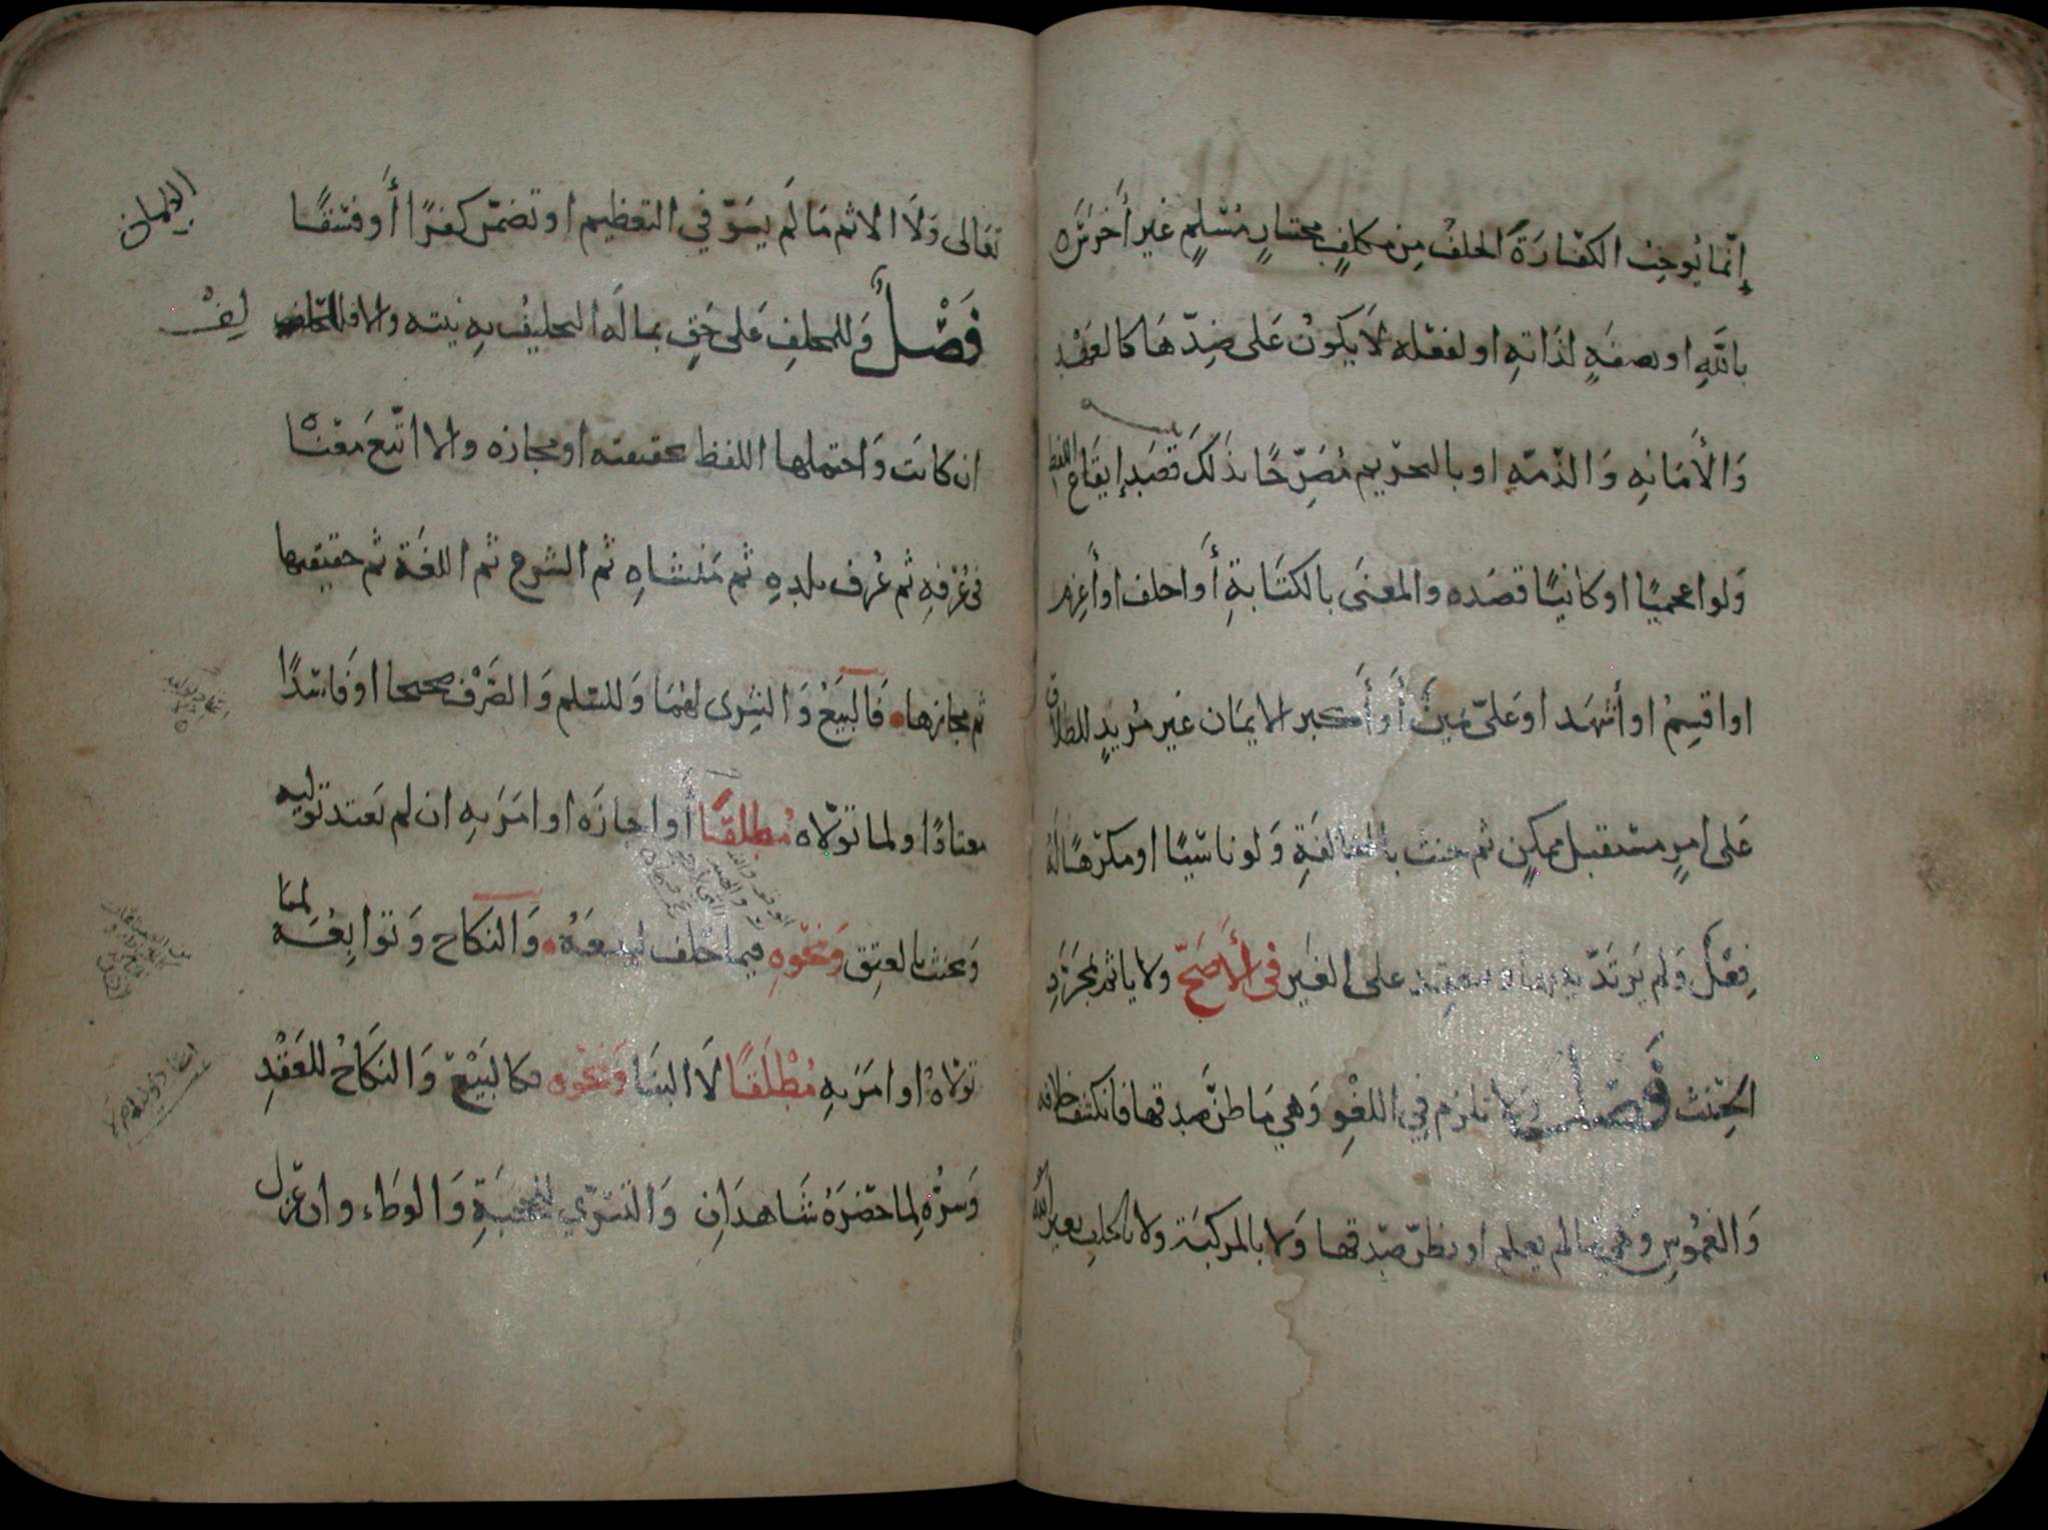 إنّما يُوجِبُ الكفّارَةَ الحلفُ مِن مكلفٍ مختارٍ مُسْلِمٍ غير أَخرَسَ
باللّهِ او بصفةٍ لذَاتهِ او لفعْله لاَ يكونُ عَلى ضِدّهَا كالعَهْدِ
وَالأَمَانهِ وَالذّمّهِ او بالتحريم مُصَرِّحًا بذَلكَ قصَدَ إيقَاع اللفظ
وَلو اعجميًا او كانيًا قصَده والمعنَى بالكتَابةِ أَو احلف او أَعزم
او اقسِمُ او أشهَد او عَليّ يَمينٌ أَو أَكبر الايمَان غَير مُريدٍ للطلاق
عَلى امرٍ مستقبل ممكِنٍ ثم حنث بالمخالفَةِ وَلو ناسيًا او مكرَهًا لهُ
فِعْلٌ وَلم يَرتَدّ بينهما وتنعقد على الغَير في الأَصَحّ ولا ياثم بمجَرَّدِ
الحِنْثِ فَصْل وَلا تلزم فِي اللغْوِ وَهي مَا ظنّ صدقها فانكشف خلافه
وَالغَمُوسِ وهي ما لم يعلم او يظنّ صِدقها وَلا بالمركبَة ولا بالحلفِ بغير الله
الايمان
تعَالى وَلاَ الاثم مَا لَم يسَوّ في التعظيم او تضمّن كفرًا أَو فسْقًا
فَصْلٌ وَللمحلفِ عَلى حَقٍ بما لَه التحليفُ بِهِ نيته والا فللحا
لِفْ
ان كانَت وَاحتملها اللفظ بحقيقته او مجازه والا اتّبعَ مَعْنَاه
في عُرْفهِ ثم عُرف بلدِهِ ثم مَنشَاهِ ثم الشرع ثم اللغَة ثم حقيقتها
ثم مجازها فَالبَيعُ وَالشِرى لهُمَا وَللسَلم وَالصَّرْف صحيحا او فَاسدًا
معتادًا ولما تولاّه مُطلقًا أَو اجازَه او امَرَ بهِ ان لم يَعتد توليه
وَيحنث بالعتِق وَنحْوِهِ فيما حَلف ليبيعَهُ وَالنكاح وَتوابعُهُ لما
تولاّهُ او امَرَ بهِ مُطْلَقًا لاَ البنَا وَنحْوه فكالبَيْع وَالنكاحُ للعَقْدِ
وَسرُّه لِما حضَرَهُ شَاهدَانِ وَالتسَرّي للحجبَةِ وَالوطَاء وان عَزل